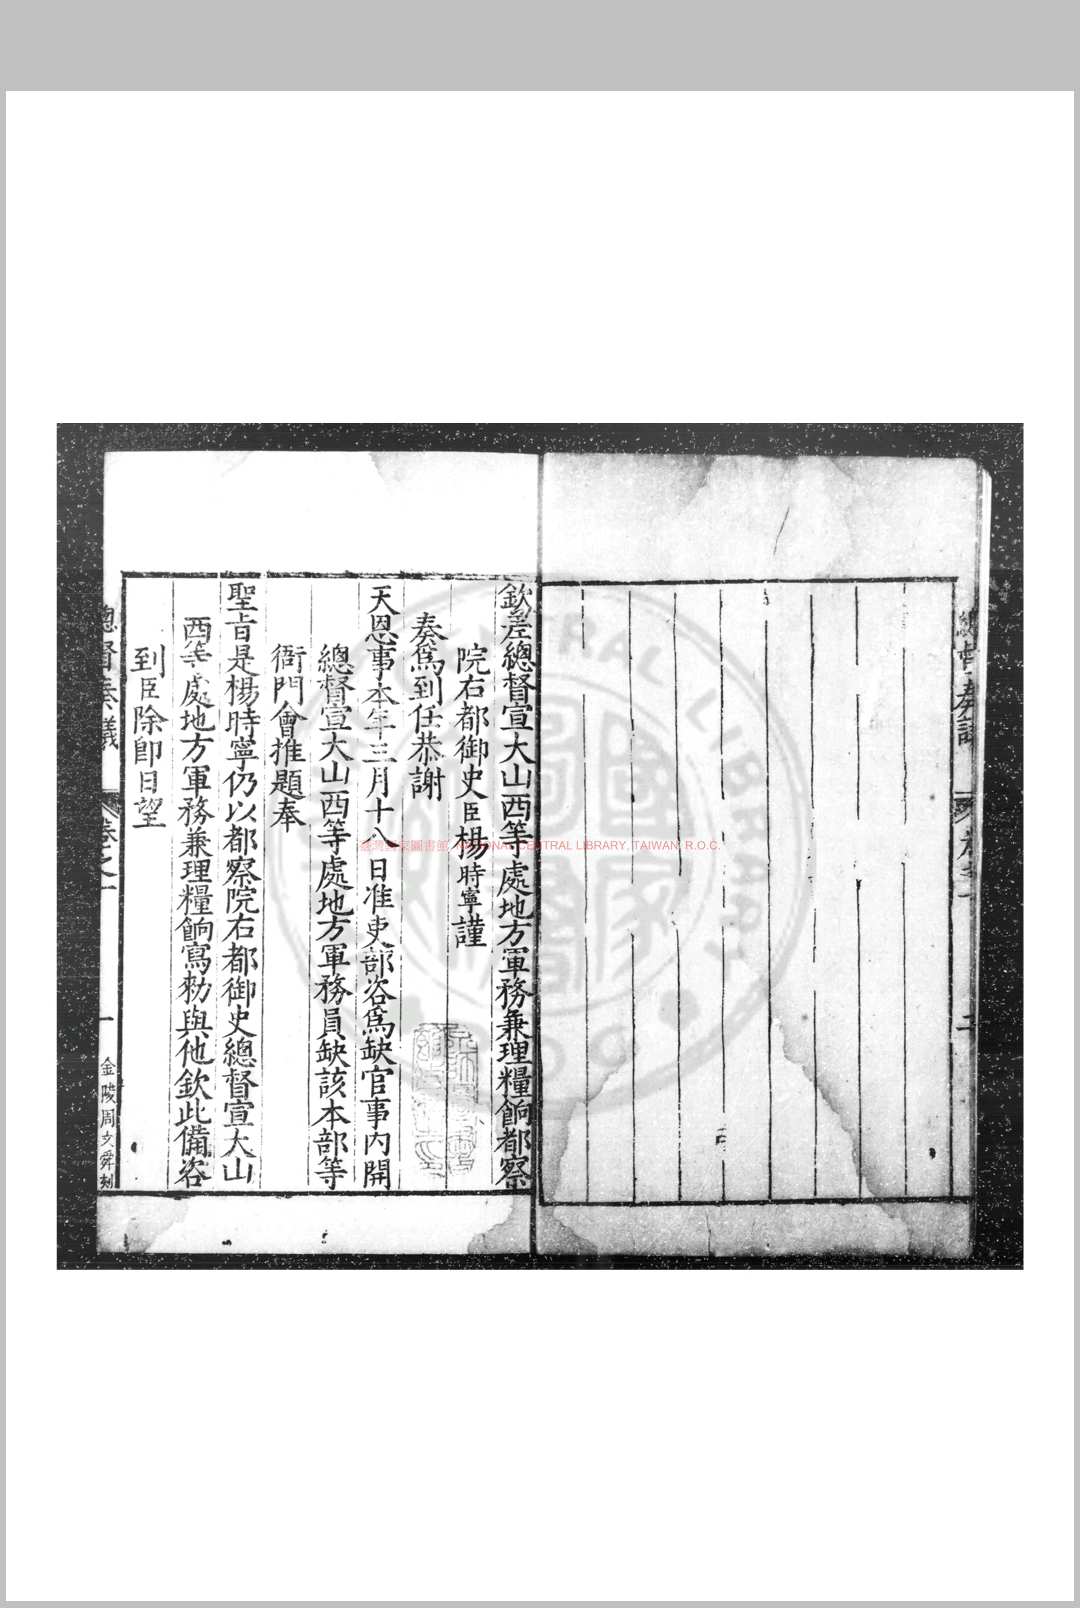 欽差總督宣大山西等處地方軍務兼理糧餉都察
院右都御史臣楊時寧謹
奏為到任恭謝
天恩事本年三月十八日准吏部咨為缺官事內開
總督宣大山西等處地方軍務員缺該本部等
衙門會推題奉
聖旨是楊時寧仍以都察院右都御史總督宣大山
西等處地方軍務兼理糧餉寫勑與他欽此備咨
到臣除即日望
總督奏議
卷之一
一
金陵周文舜刻
總督奏議
卷之一
二
臺灣國家圖書館 NATIONAL CENTRAL LIBRARY, TAIWAN, R.O.C.